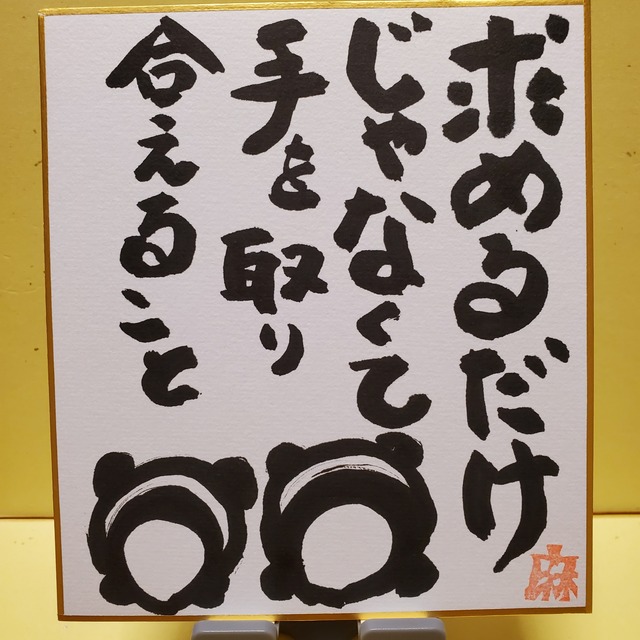 求めるだけ
じゃなくて
手を取り
合えること
麻